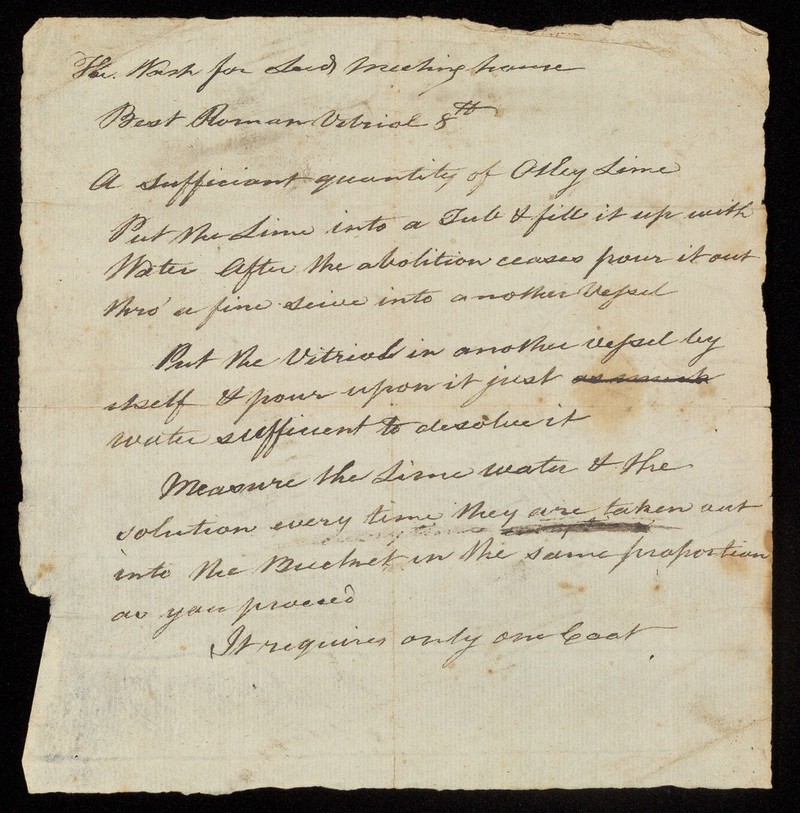 The Wash for Leeds Meeting house
Best Roman Vitriol 8 lb
A sufficiant quantity of Otley Lime
Put the Lime into a Tub & fill it up with
Water After the abolition ceases pour it out
thro' a fine seive into another Vessel
Put the Vitriol in another vessel by
itself & pour upon it just as much
water sufficient to desolve it
Measure the Lime water & the
solution every time they are taken out
into the Bucket in the same proportion
as you proceed
It requires only one Coat